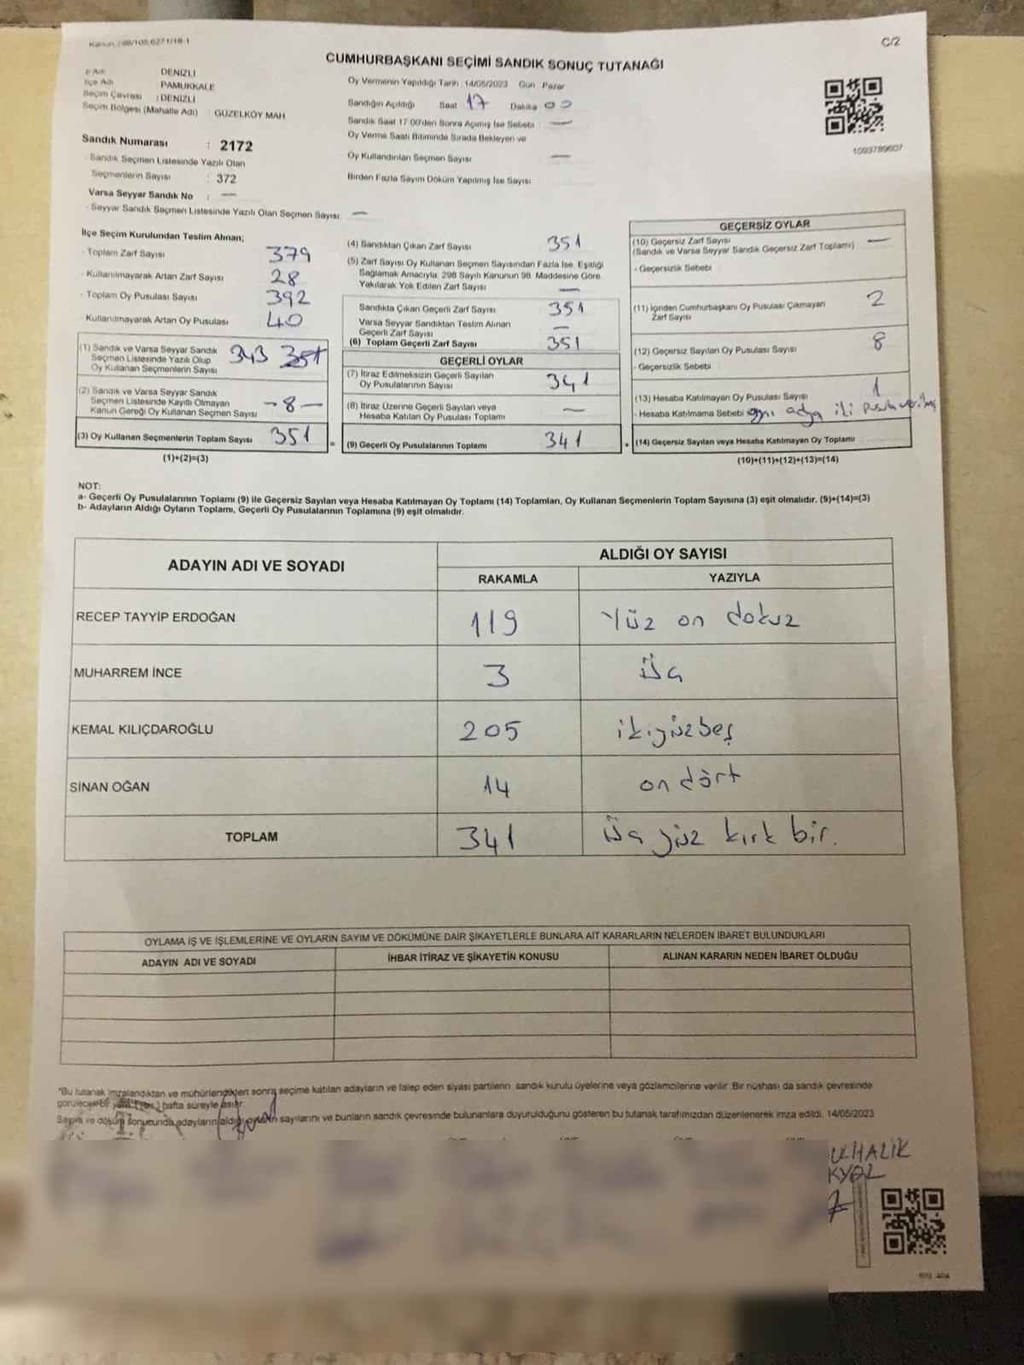 C/2
CUMHURBAŞKANI SEÇİMİ SANDIK SONUÇ TUTANAĞI
İl Adı DENİZLİ
İlçe Adı PAMUKKALE
Seçim Çevresi : DENİZLİ
Seçim Bölgesi (Mahalle Adı) GÜZELKÖY MAH
Sandık Numarası : 2172
- Sandık Seçmen Listesinde Yazılı Olan
Seçmenlerin Sayısı : 372
Varsa Seyyar Sandık No : —
- Seyyar Sandık Seçmen Listesinde Yazılı Olan Seçmen Sayısı —
Oy Vermenin Yapıldığı Tarih : 14/05/2023 Gün Pazar
Sandığın Açıldığı Saat 17 Dakika 00
Sandık Saat 17:00'den Sonra Açılmış İse Sebebi —
Oy Verme Saati Bitiminde Sırada Bekleyen ve
Oy Kullandırılan Seçmen Sayısı —
Birden Fazla Sayım Döküm Yapılmış İse Sayısı —
1093789607
İlçe Seçim Kurulundan Teslim Alınan;
- Toplam Zarf Sayısı 379
- Kullanılmayarak Artan Zarf Sayısı 28
- Toplam Oy Pusulası Sayısı 392
- Kullanılmayarak Artan Oy Pusulası 40
(1) Sandık ve Varsa Seyyar Sandık
Seçmen Listesinde Yazılı Olup
Oy Kullanan Seçmenlerin Sayısı 343 351
(2) Sandık ve Varsa Seyyar Sandık
Seçmen Listesinde Kayıtlı Olmayan
Kanun Gereği Oy Kullanan Seçmen Sayısı -8-
(3) Oy Kullanan Seçmenlerin Toplam Sayısı 351
(1)+(2)=(3)
(4) Sandıktan Çıkan Zarf Sayısı 351
(5) Zarf Sayısı Oy Kullanan Seçmen Sayısından Fazla İse, Eşitliği
Sağlamak Amacıyla, 298 Sayılı Kanunun 98. Maddesine Göre
Yakılarak Yok Edilen Zarf Sayısı —
Sandıkta Çıkan Geçerli Zarf Sayısı 351
Varsa Seyyar Sandıktan Teslim Alınan
Geçerli Zarf Sayısı —
(6) Toplam Geçerli Zarf Sayısı 351
GEÇERLİ OYLAR
(7) İtiraz Edilmeksizin Geçerli Sayılan
Oy Pusulalarının Sayısı 341
(8) İtiraz Üzerine Geçerli Sayılan veya
Hesaba Katılan Oy Pusulası Toplamı —
(9) Geçerli Oy Pusulalarının Toplamı 341
GEÇERSİZ OYLAR
(10) Geçersiz Zarf Sayısı —
(Sandık ve Varsa Seyyar Sandık Geçersiz Zarf Toplamı)
- Geçersizlik Sebebi
(11) İçinden Cumhurbaşkanı Oy Pusulası Çıkmayan
Zarf Sayısı 2
(12) Geçersiz Sayılan Oy Pusulası Sayısı 8
- Geçersizlik Sebebi
(13) Hesaba Katılmayan Oy Pusulası Sayısı 1
- Hesaba Katılmama Sebebi aynı adya iki pusula
(14) Geçersiz Sayılan veya Hesaba Katılmayan Oy Toplamı
(10)+(11)+(12)+(13)=(14)
NOT:
a- Geçerli Oy Pusulalarının Toplamı (9) ile Geçersiz Sayılan veya Hesaba Katılmayan Oy Toplamı (14) Toplamları, Oy Kullanan Seçmenlerin Toplam Sayısına (3) eşit olmalıdır. (9)+(14)=(3)
b- Adayların Aldığı Oyların Toplamı, Geçerli Oy Pusulalarının Toplamına (9) eşit olmalıdır.
ADAYIN ADI VE SOYADI ALDIĞI OY SAYISI
RAKAMLA YAZIYLA
RECEP TAYYİP ERDOĞAN 119 Yüz on dokuz
MUHARREM İNCE 3 Üç
KEMAL KILIÇDAROĞLU 205 ikiyüzbeş
SİNAN OĞAN 14 on dört
TOPLAM 341 Üç yüz kırk bir.
OYLAMA İŞ VE İŞLEMLERİNE VE OYLARIN SAYIM VE DÖKÜMÜNE DAİR ŞİKAYETLERLE BUNLARA AİT KARARLARIN NELERDEN İBARET BULUNDUKLARI
ADAYIN ADI VE SOYADI İHBAR İTİRAZ VE ŞİKAYETİN KONUSU ALINAN KARARIN NEDEN İBARET OLDUĞU
*Bu tutanak imzalandıktan ve mühürlendikten sonra seçime katılan adayların ve talep eden siyasi partilerin, sandık kurulu üyelerine veya gözlemcilerine verilir. Bir nüshası da sandık çevresinde
görülecek bir yere hafta süreyle asılır.
Sayım ve döküm sonucunda adayların aldığı oyların sayılarını ve bunların sandık çevresinde bulunanlara duyurulduğunu gösteren bu tutanak tarafımızdan düzenlenerek imza edildi. 14/05/2023